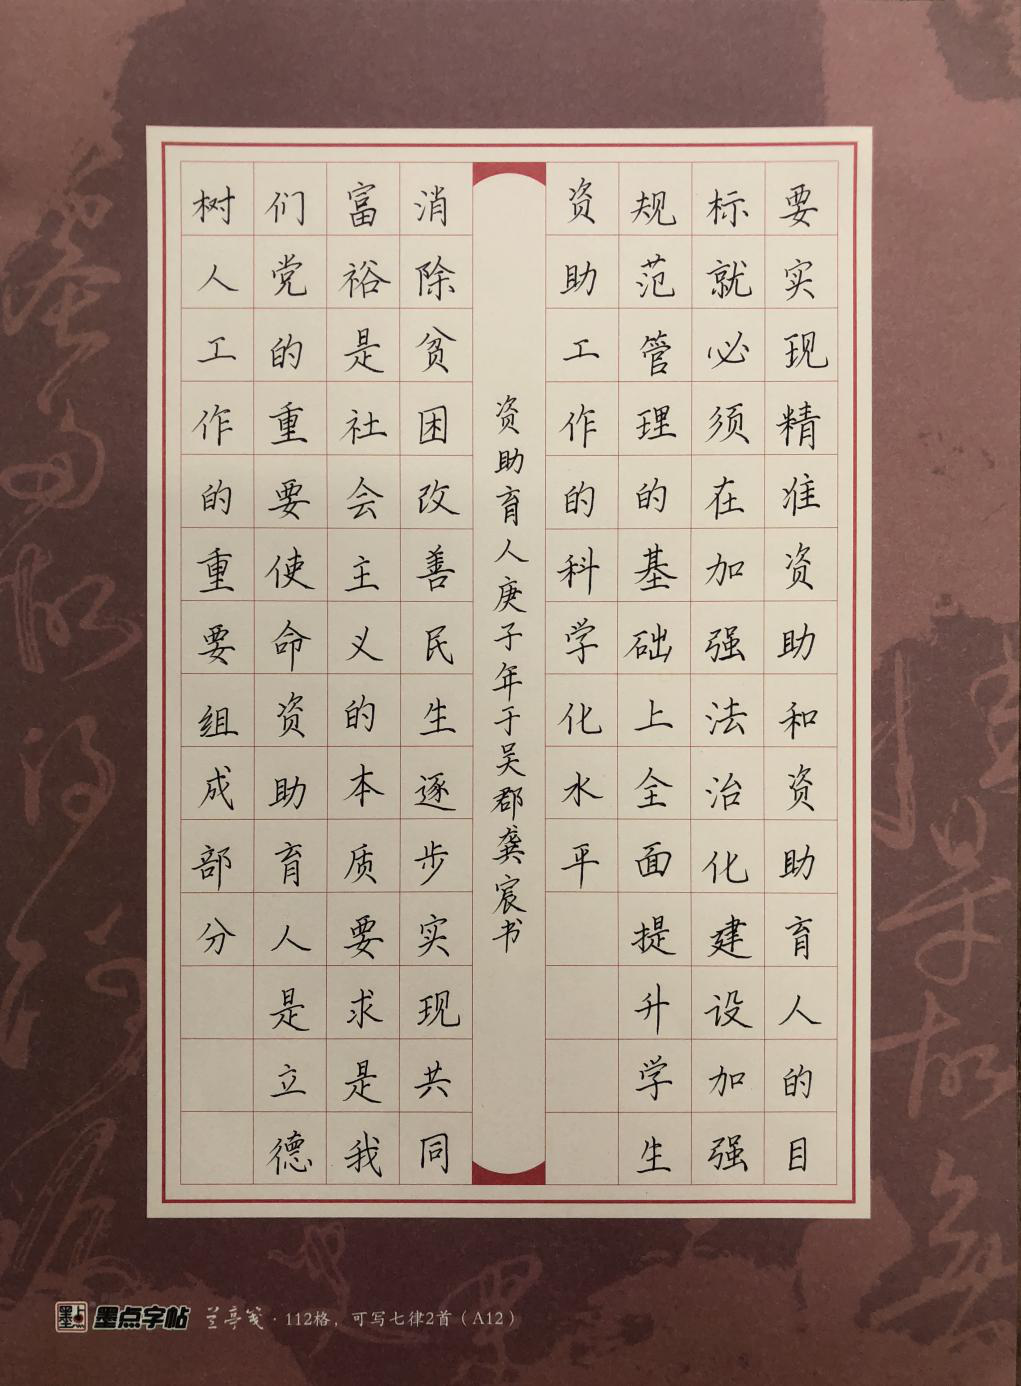 要实现精准资助和资助育人的目
标就必须在加强法治化建设加强
规范管理的基础上全面提升学生
资助工作的科学化水平
资助育人庚子年于吴郡龚宸书
消除贫困改善民生逐步实现共同
富裕是社会主义的本质要求是我
们党的重要使命资助育人是立德
树人工作的重要组成部分
墨点字帖 兰亭笺·112格，可写七律2首（A12）